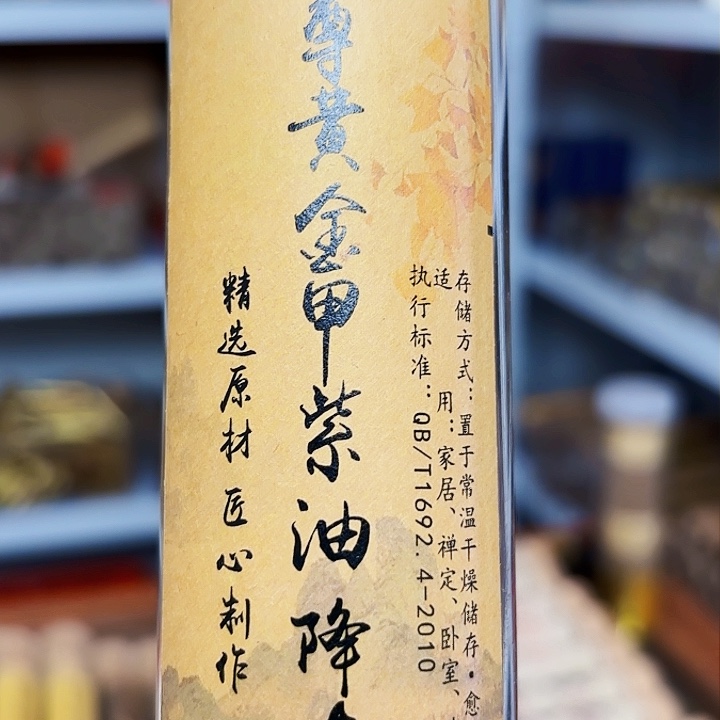 存储方式：置于常温干燥储存•愈
适用：家居、禅定、卧室、
执行标准：QB/T1692.4-2010
尊黄金甲紫油降
精选原材 匠心制作